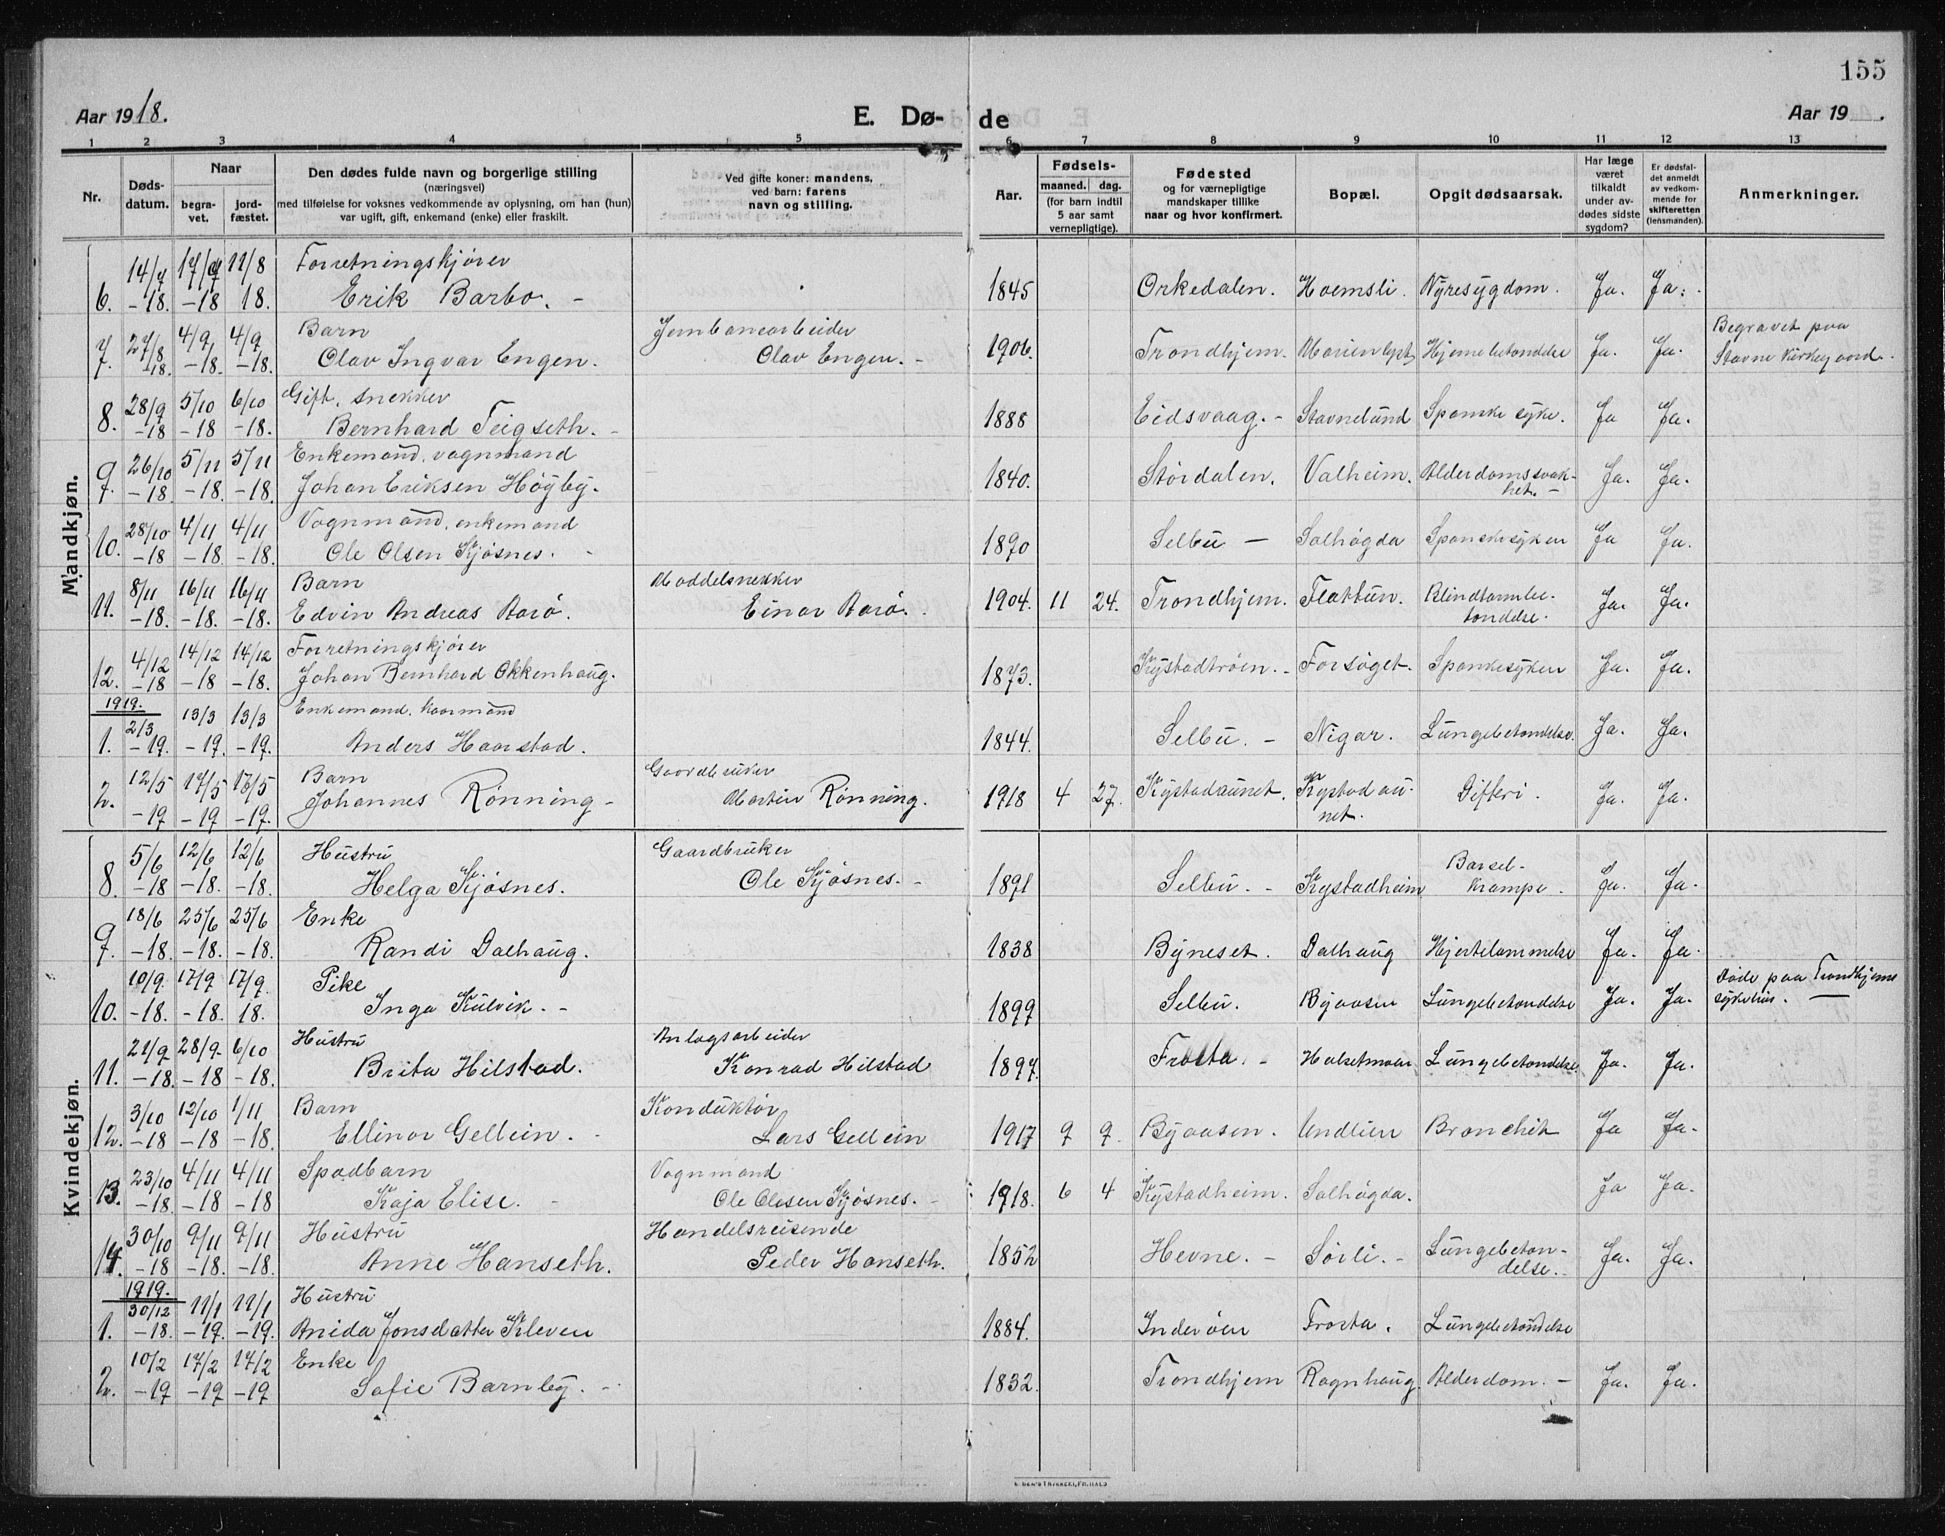 155
Aar 1918. E. Dø- de Aar 19 .
1 2 3 4 5 6 7 8 9 10 11 12 13
Nr. Døds-datum. Naar begra-vet. jord-fæstet. Den dødes fulde navn og borgerlige stilling (næringsvei) med tilføielse for voksnes vedkommende av oplysning, om han (hun) var ugift, gift, enkemand (enke) eller fraskilt. Ved gifte koner: mandens, ved barn: farens navn og stilling. Aar. Fødsels- maaned. dag. (for barn indtil 5 aar samt vernepligtige). Fødested og for værnepligtige mandskaper tillike naar og hvor konfirmert. Bopæl. Opgit dødsaarsak. Har læge været tilkaldt under av-dødes sidste sygdom? Er dødsfal-det anmeldt av vedkom-mende for skifteretten (lensmanden). Anmerkninger.
Mandkjøn.
6. 14/7 -18. 17/7 -18 11/8 18. Forretningskjører Erik Barbo. - 1845 Orkedalen. Hoemsli. Nyresygdom. Ja. Ja.
7. 27/8 18. 4/9 -18. 4/9 -18. Barn Olav Ingvar Engen. Jernbanearbeider Olav Engen. - 1906. Trondhjem. Marienlyst Hjernebetændelse Ja. Ja. Begravet paa Stavne Kirkegaard.
8. 28/9 -18 5/10 -18 6/10 -18. Gift, snekker Bernhard Teigseth. - 1888 Eidsvaag. - Stavnelund Spanske syke. Ja Ja.
9. 26/10 -18. 5/11 -18. 5/11 -18. Enkemand, vognmand Johan Eriksen Höÿbÿ. 1840. Stördalen. Valheim. Alderdomssvak-het. - Ja. Ja.
10. 28/10 -18 4/11 -18. 4/11 -18. Vognmand, enkemand Ole Olsen Kjøsnes. - 1890 Selbu - Solhøgda Spanskesyken Ja Ja.
11. 8/11 -18. 16/11 -18. 16/11 -18. Barn Edvin Andreas Aarø. Moddelsnekker Einar Aarø. 1904 11 24. Trondhjem. Flattun. Blindtarmbe-tændelse. Ja. Ja.
12. 4/12 -18 14/12 -18 14/12 -18. Forretningskjører Johan Bernhard Okkenhaug. 1873. Kystadtrøen. - Forsøget. Spanskesyken Ja. Ja.
1919.
1. 2/3 -19. 13/3 -19. 13/3 -19. Enkemand, kaarmand Anders Haarstad. 1844. Selbu. - Nigar. Lungebetændelse. Ja. Ja.
2. 12/5 -19 17/5 -19 17/5 -19. Barn Johannes Rønning - Gaardbruker Martin Rønning. 1918 4 27. Kystadaunet. Kystadau-net. Difteri. Ja. Ja.
Kvindekjøn.
8. 5/6 -18 12/6 -18. 12/6 -18. Hustru Helga Kjøsnes. Gaardbruker Ole Kjøsnes. - 1891 Selbu. - Kystadheim Barsel-krampe. Ja. Ja.
9. 18/6 -18. 25/6 -18. 25/6 -18. Enke Randi Dalhaug. 1838 Byneset. Dalhaug Hjertelammelse Ja. Ja.
10. 10/9. -18. 17/9 -18. 17/9. 18. Pike Inga Kulvik. - 1899 Selbu. Byaasen Lungebetændelse Ja. Ja. Døde paa Trondhjems sykehus. -
11. 21/9 -18. 28/9. -18 6/10 -18. Hustru Brita Hilstad. Anlægsarbeider Konrad Hilstad 1897. Frosta. - Halsetmoen Lungebetændelse Ja. Ja.
12. 3/10 -18 12/10 -18 1/11 -18. Barn Ellinor Gellein. - Konduktør Lars Gellein 1917 9 9. Byaasen. Undlien Bronchit Ja Ja.
13. 23/10 -18. 4/11 -18 4/11 -18 Spædbarn Kaja Elise. - Vognmand Ole Olesen Kjøsnes. - 1918. 6 4 Kystadheim. Solhøgda. Ja Ja.
14. 30/10 -18 9/11 -18. 9/11 -18. Hustru Anne Hanseth. Handelsreisende Peder Hanseth. 1852 Hevne. - Sørli. - Lungebetæn-delse. Ja. Ja.
1919.
1. 30/12 -18. 11/1 -19. 11/1 -19. Hustru Anida Jonsdatter Kleven 1884. Inderøen Frosta. Lungebetændelse
2. 10/2 -19 17/2 -19 17/2 -19 Enke Sofie Barnbÿ. - 1832. Trondhjem Ragnhaug. Alderdom. - Ja. Ja.